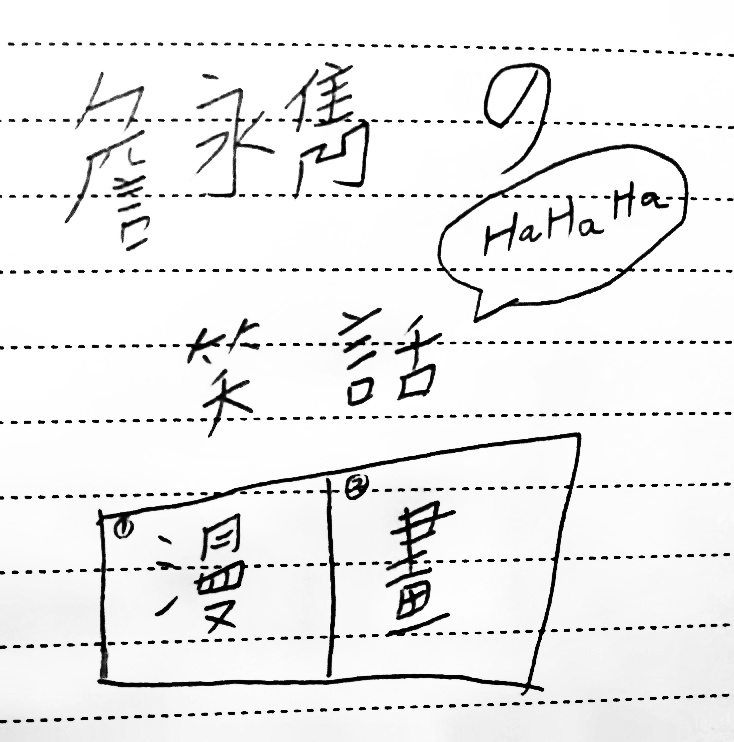 詹永雋の
HaHaHa
笑話
① ②
漫畫